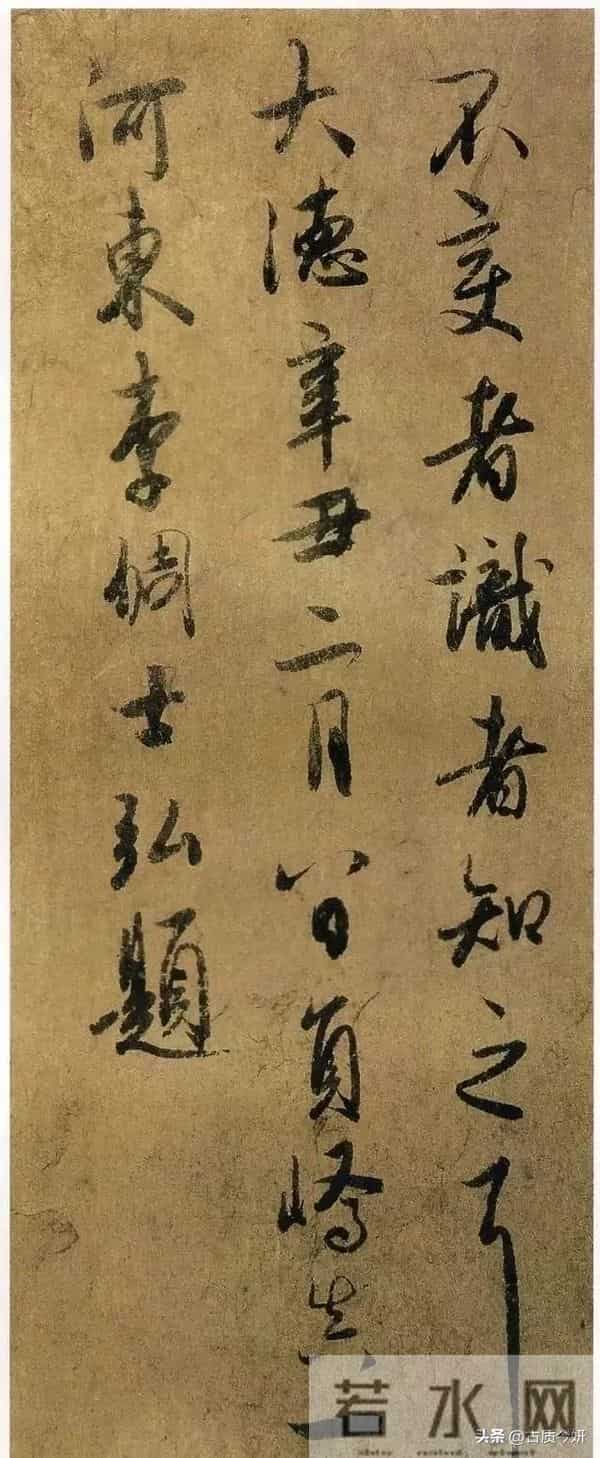 不变者識者知之耳
大德辛丑二月八日員嶠真
河東李倜士弘題
若水网
头条 @古质今妍